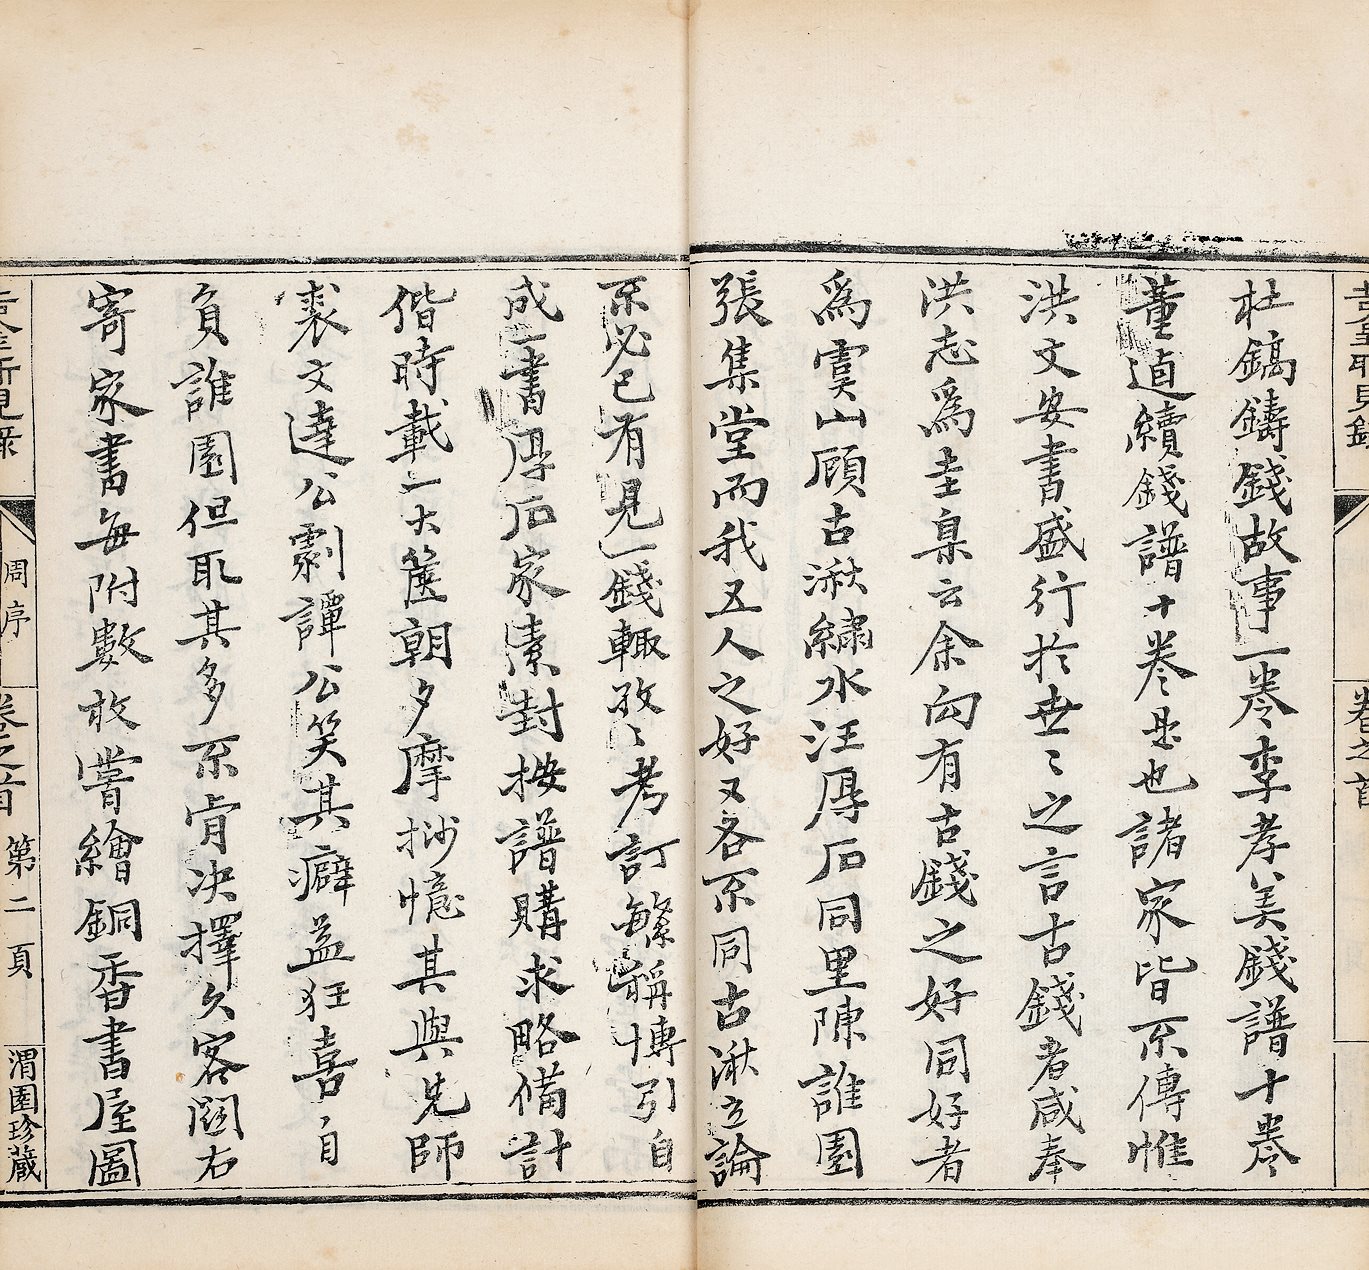 杜鎬鑄錢故事一卷李孝美錢譜十卷
董逌續錢譜十卷是也諸家皆不傳惟
洪文安書盛行於世〻之言古錢者咸奉
洪志為圭臬云余向有古錢之好同好者
為虞山顧古湫繡水汪厚石同里陳誰園
張集堂而我五人之好又各不同古湫立論
不必已有見一錢輒孜〻考訂繁稱博引自
成一書厚石家素封按譜購求略備計
偕時載一大簏朝夕摩抄憶其與先師
裘文達公劇譚公笑其癖益狂喜自
負誰園但取其多不肯決擇久客閩右
寄家書每附數枚嘗繪銅香書屋圖
吉金所見錄
周序
卷之首
第二頁
渭園珍藏